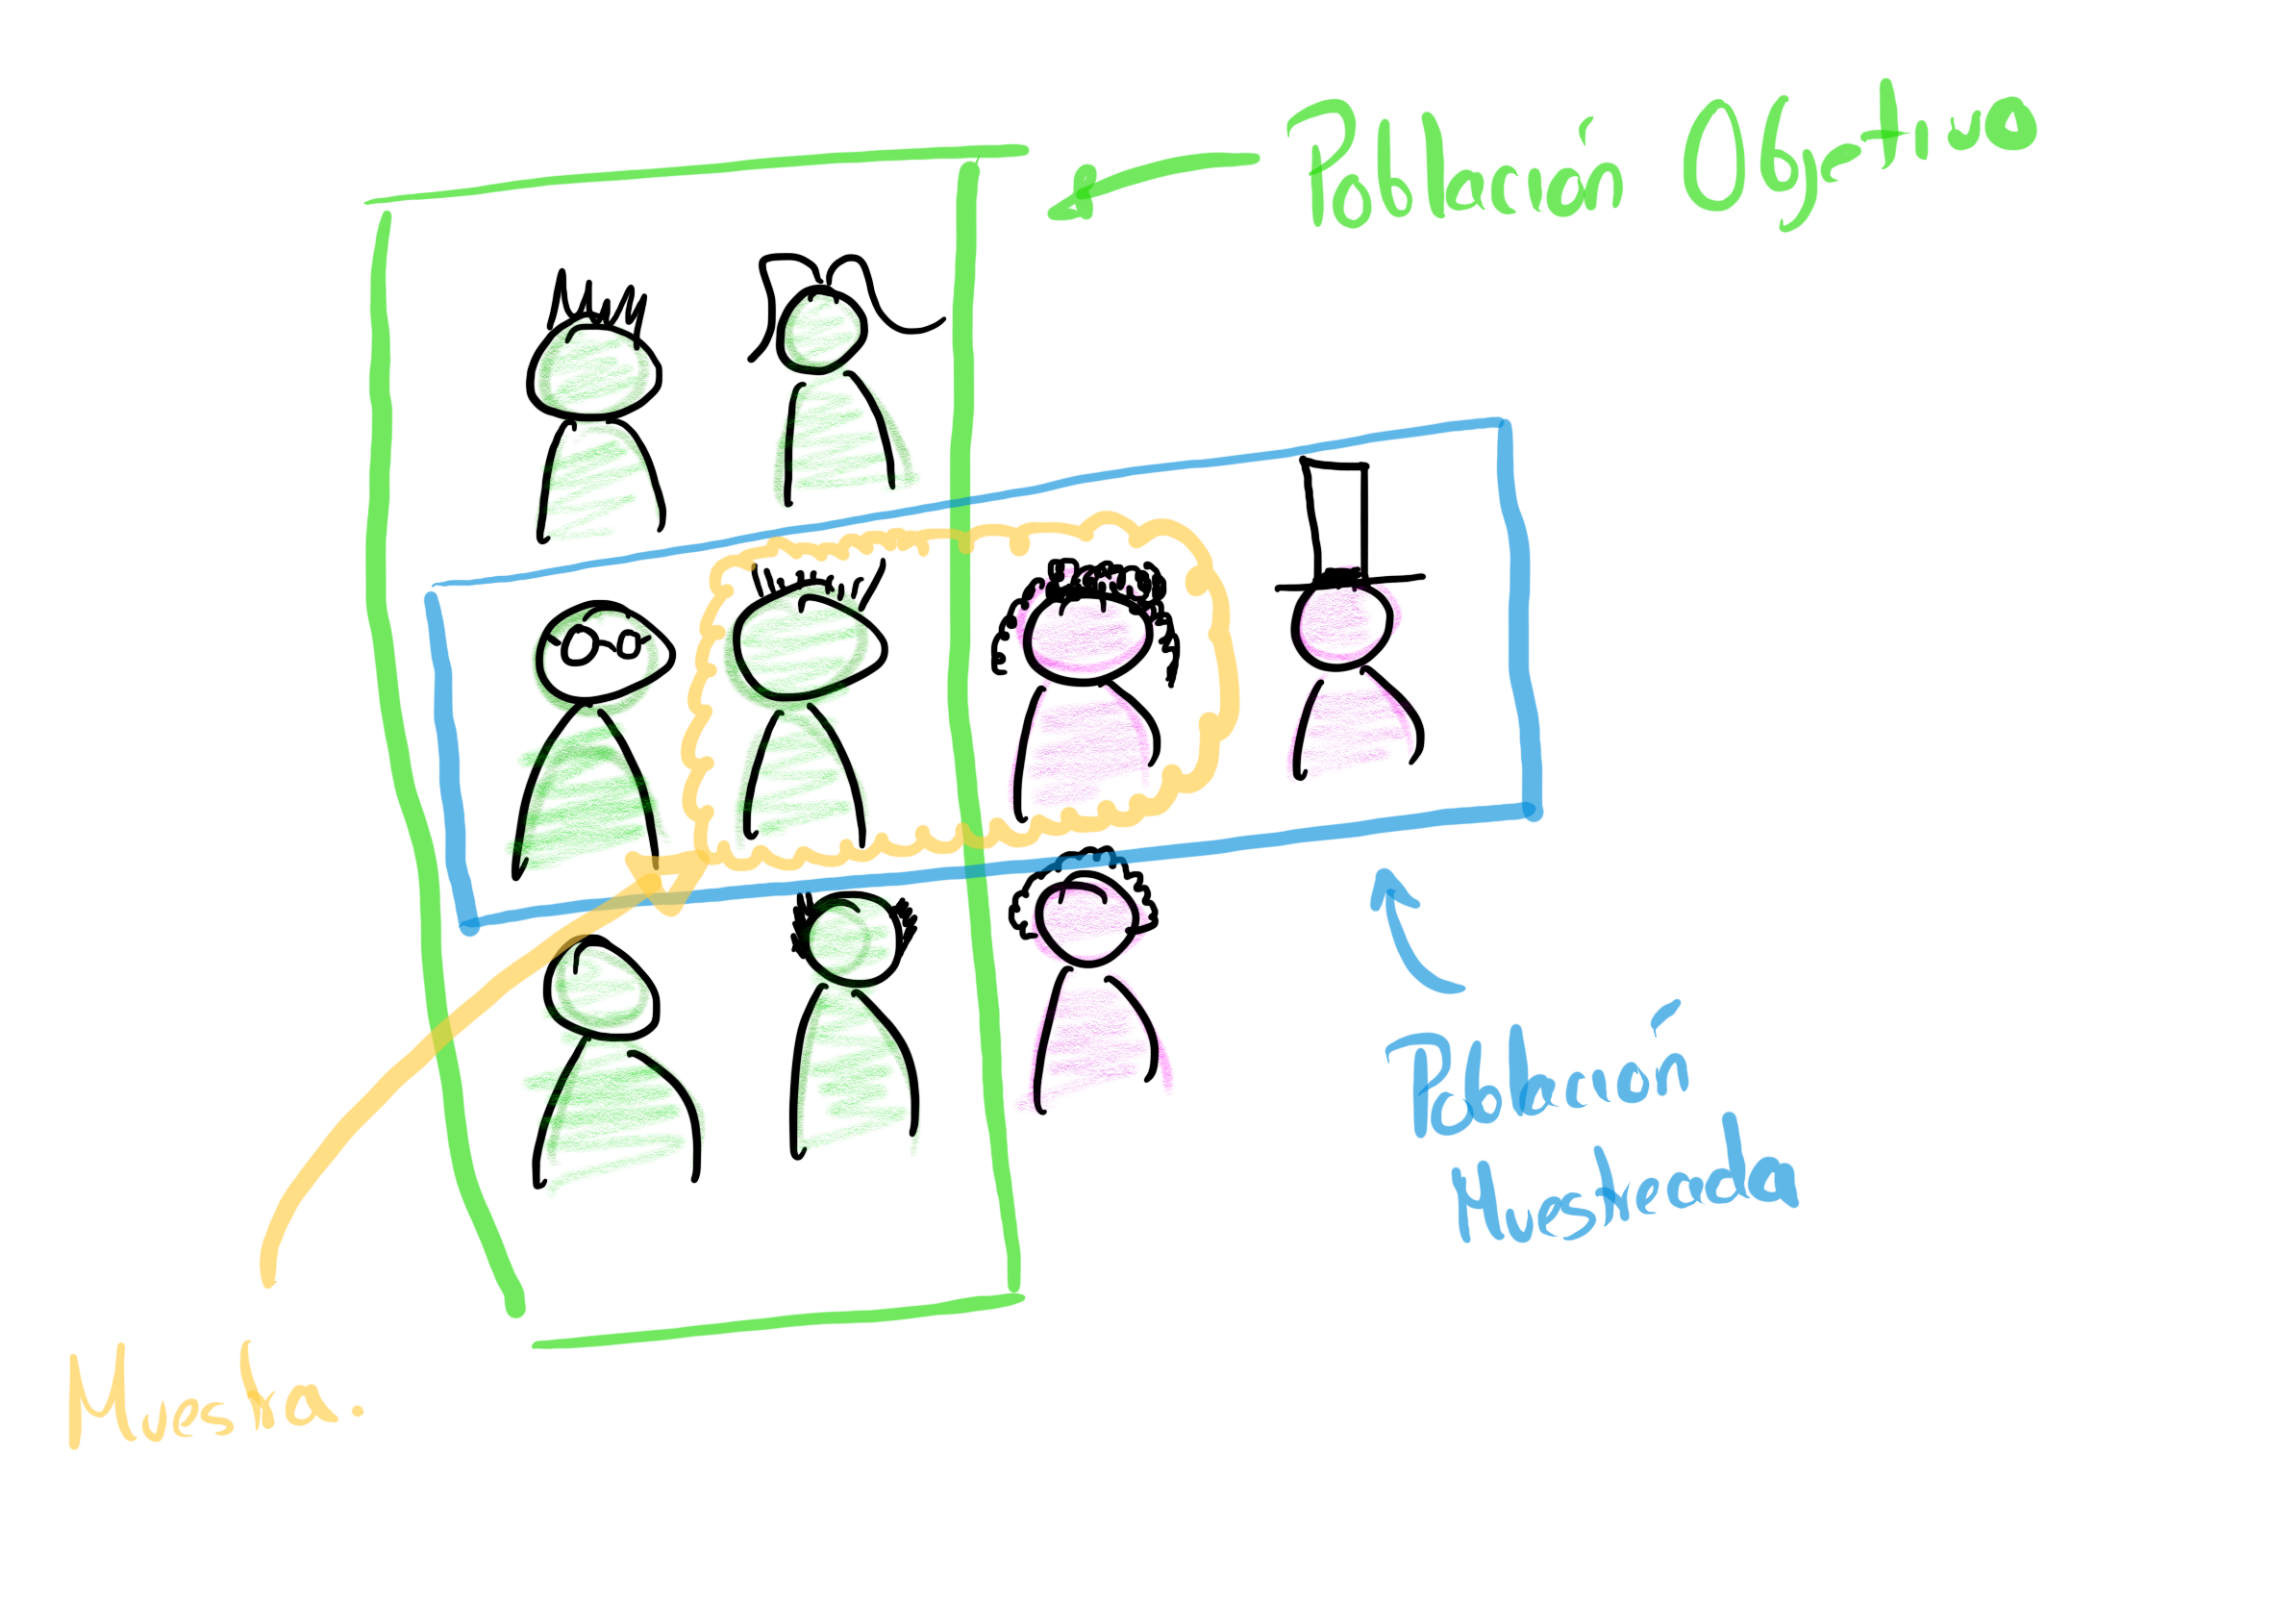 Población Objetivo
Población
Muestreada
Muestra.